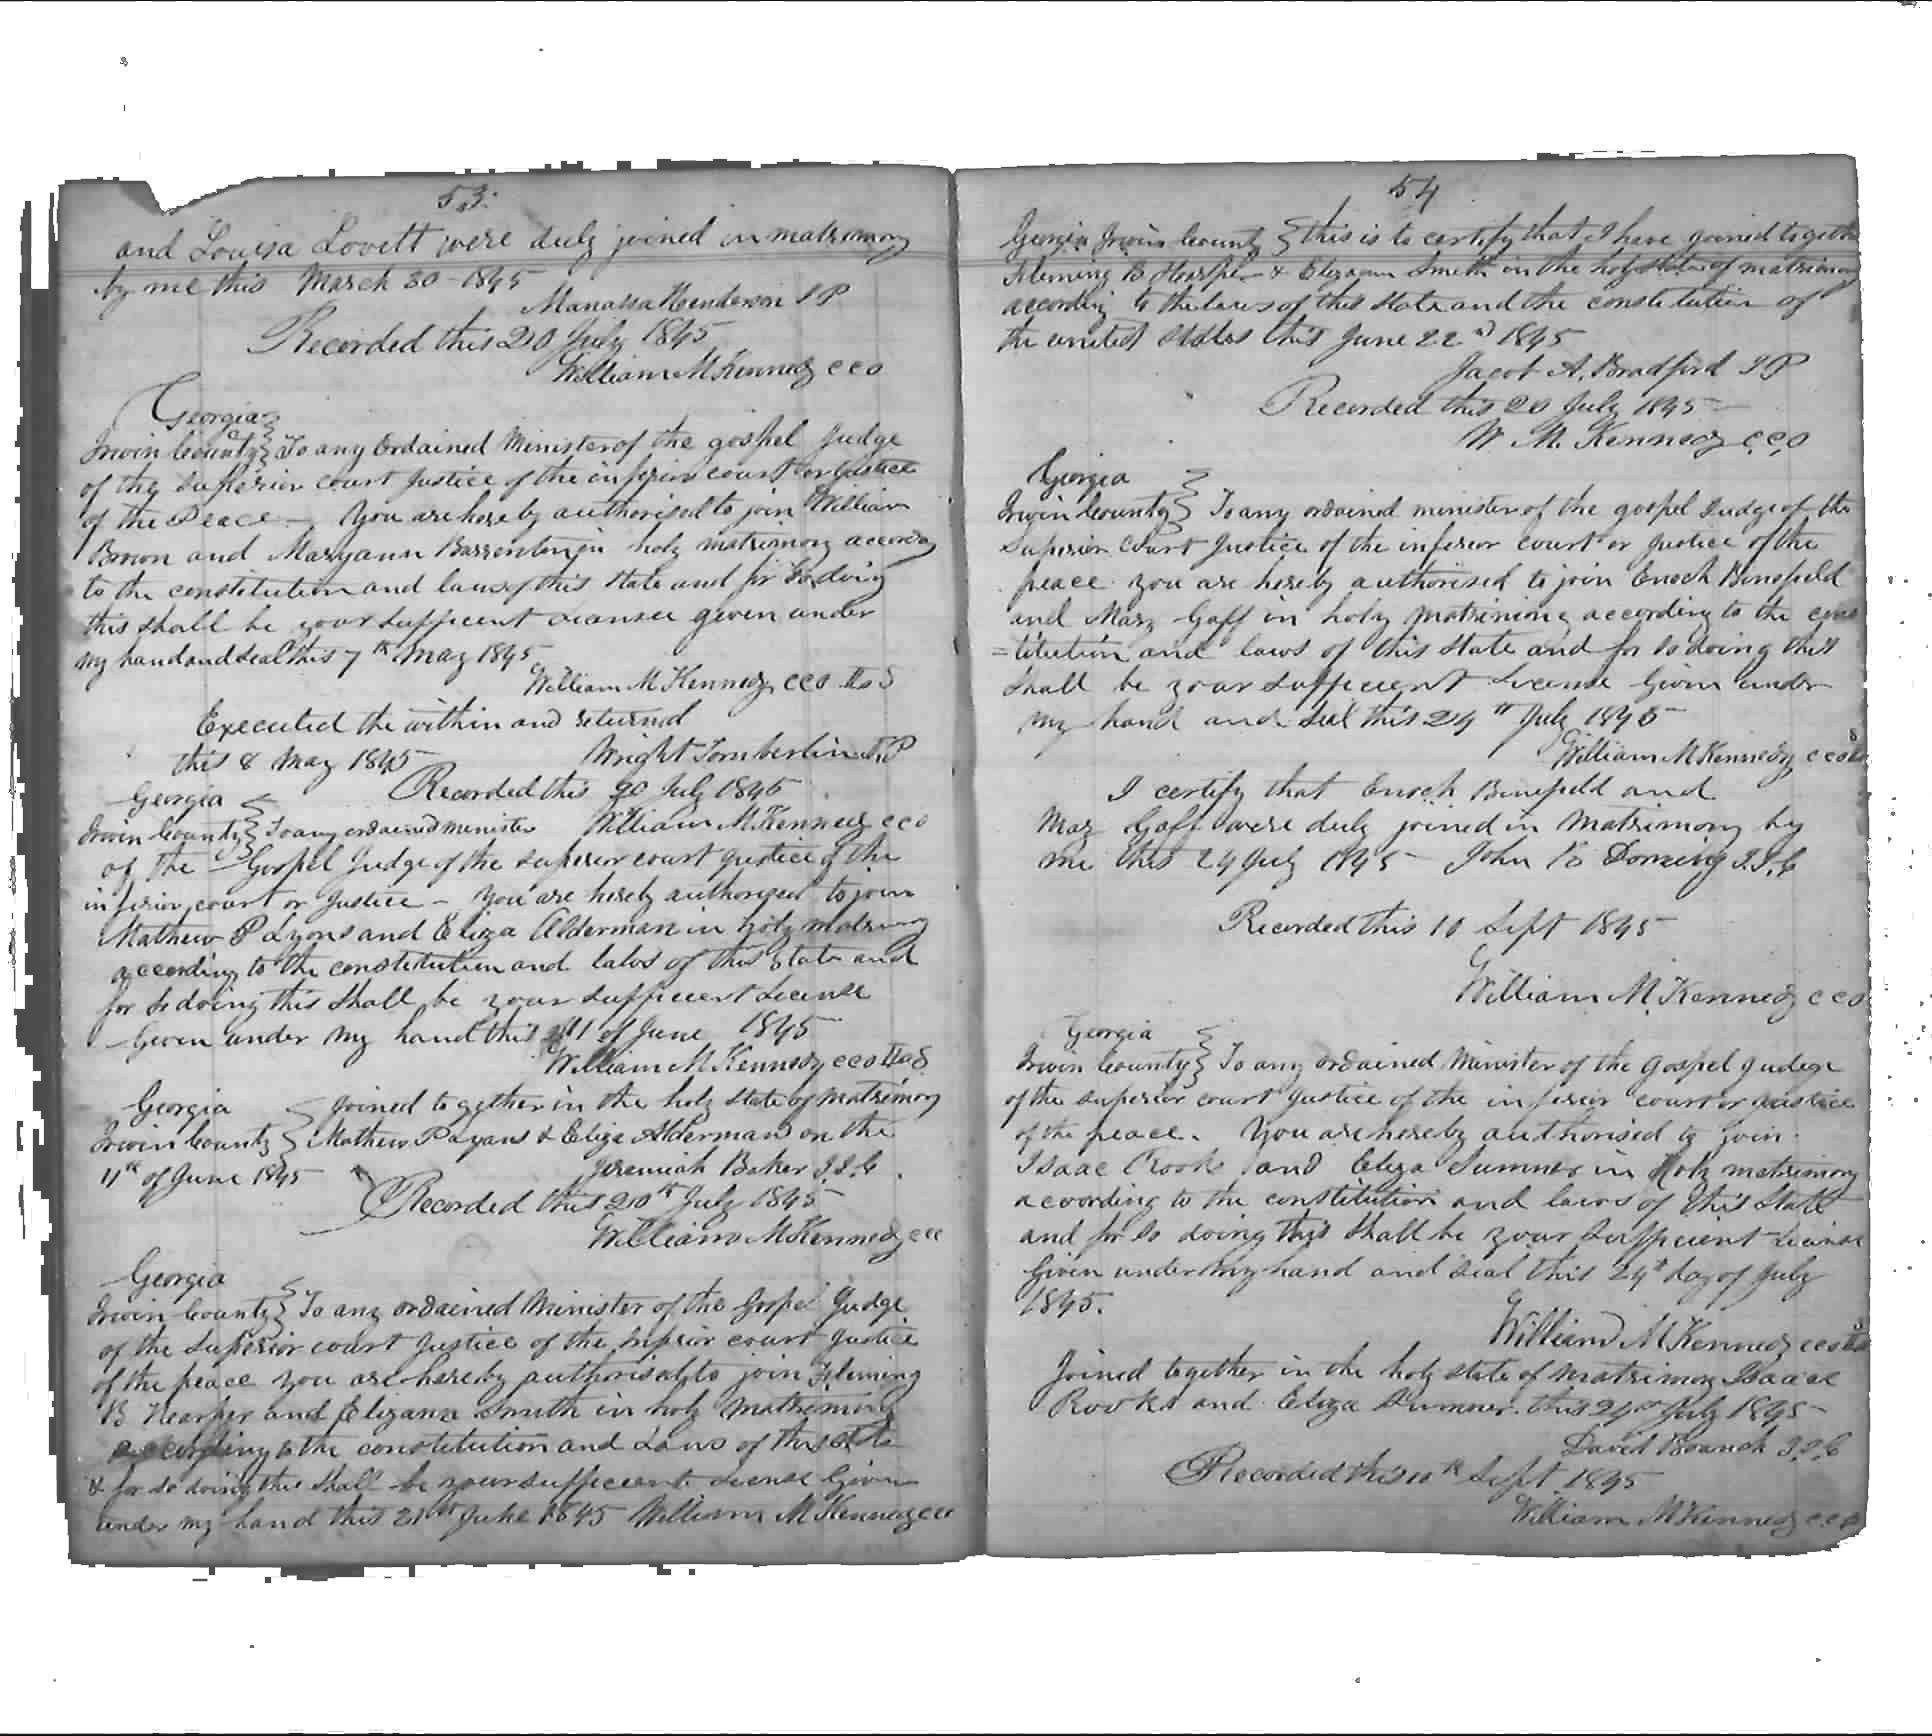 53.
and Louisa Lovett were duly joined in matrimony
by me this March 30 - 1845
Manassa Henderson J P
Recorded this 20 July 1845
William M Kennedy c c o
Georgia
Irwin County To any ordained Minister of the gospel Judge
of the superior court Justice of the inferior court or Justice
of the Peace - You are hereby authorised to join William
Brown and Maryann in holy matrimony
to the constitution and laws of this state and for so doing
this shall be your sufficient given under
my hand and seal this 7th May 1845
William M Kennedy cco
Executed the within and returned
this 8 May 1845 Wright Tomberlin J.P
Recorded this 20 July 1845
Georgia
Irwin County To any ordained minister William M Kennedy c c o
of the Gospel Judge of the superior court Justice of the
inferior court or Justice - You are hereby authorised to join
Mathew P Lyons and Eliza Alderman in holy
according to the constitution and laws of this state and
for so doing this shall be your sufficient License
Given under my hand this 11 of June 1845
William M Kennedy cco
Georgia Joined together in the holy state of matrimony
Irwin County Mathew P Lyons & Eliza Alderman on the
11th of June 1845 Jeremiah Baker J.I.C
Recorded this 20th July 1845
William M Kennedy
Georgia
Irwin County To any ordained Minister of the Gospel Judge
of the superior court Justice of the inferior court Justice
of the peace you are hereby authorised to join Fleming
B and Elizann Smith in holy
according to the constitution and Laws of this state
& for so doing this shall be your sufficient License Given
under my hand this 21st June 1845 William M Kennedy
54
Georgia Irwin County this is to certify that I have joined
Fleming B & Elizann Smith in the holy state of matrimony
according to the laws of this state and the constitution of
the united states this June 22nd 1845
Jacob A. Bradford J P
Recorded this 20 July 1845
W M. Kennedy c.c.o
Georgia
Irwin County To any ordained minister of the gospel Judge of the
superior court Justice of the inferior court or Justice of the
peace you are hereby authorised to join Enoch Benefield
and Mary Goff in holy matrimony according to the
=titution and laws of this state and for so doing this
shall be your sufficient License Given under
my hand and seal this 24th July 1845
William M Kennedy
I certify that Enoch Benefield and
Mary Goff were duly joined in Matrimony by
me this 24 July 1845 John B J.I.C
Recorded this 10 Sept 1845
William M. Kennedy c c o
Georgia
Irwin County To any ordained Minister of the Gospel Judge
of the superior court Justice of the inferior court or Justice
of the peace. You are hereby authorised to join
Isaac and Eliza Sumner in Holy matrimony
according to the constitution and laws of this State
and for so doing this shall be your sufficient License
Given under my hand and seal this 24th day of July
1845.
William M Kennedy
Joined together in the holy state of matrimony Isaac
Rooks and Eliza Sumner this July 1845
David Branch J.I.C
Recorded this 10th Sept 1845
William M Kennedy c c o